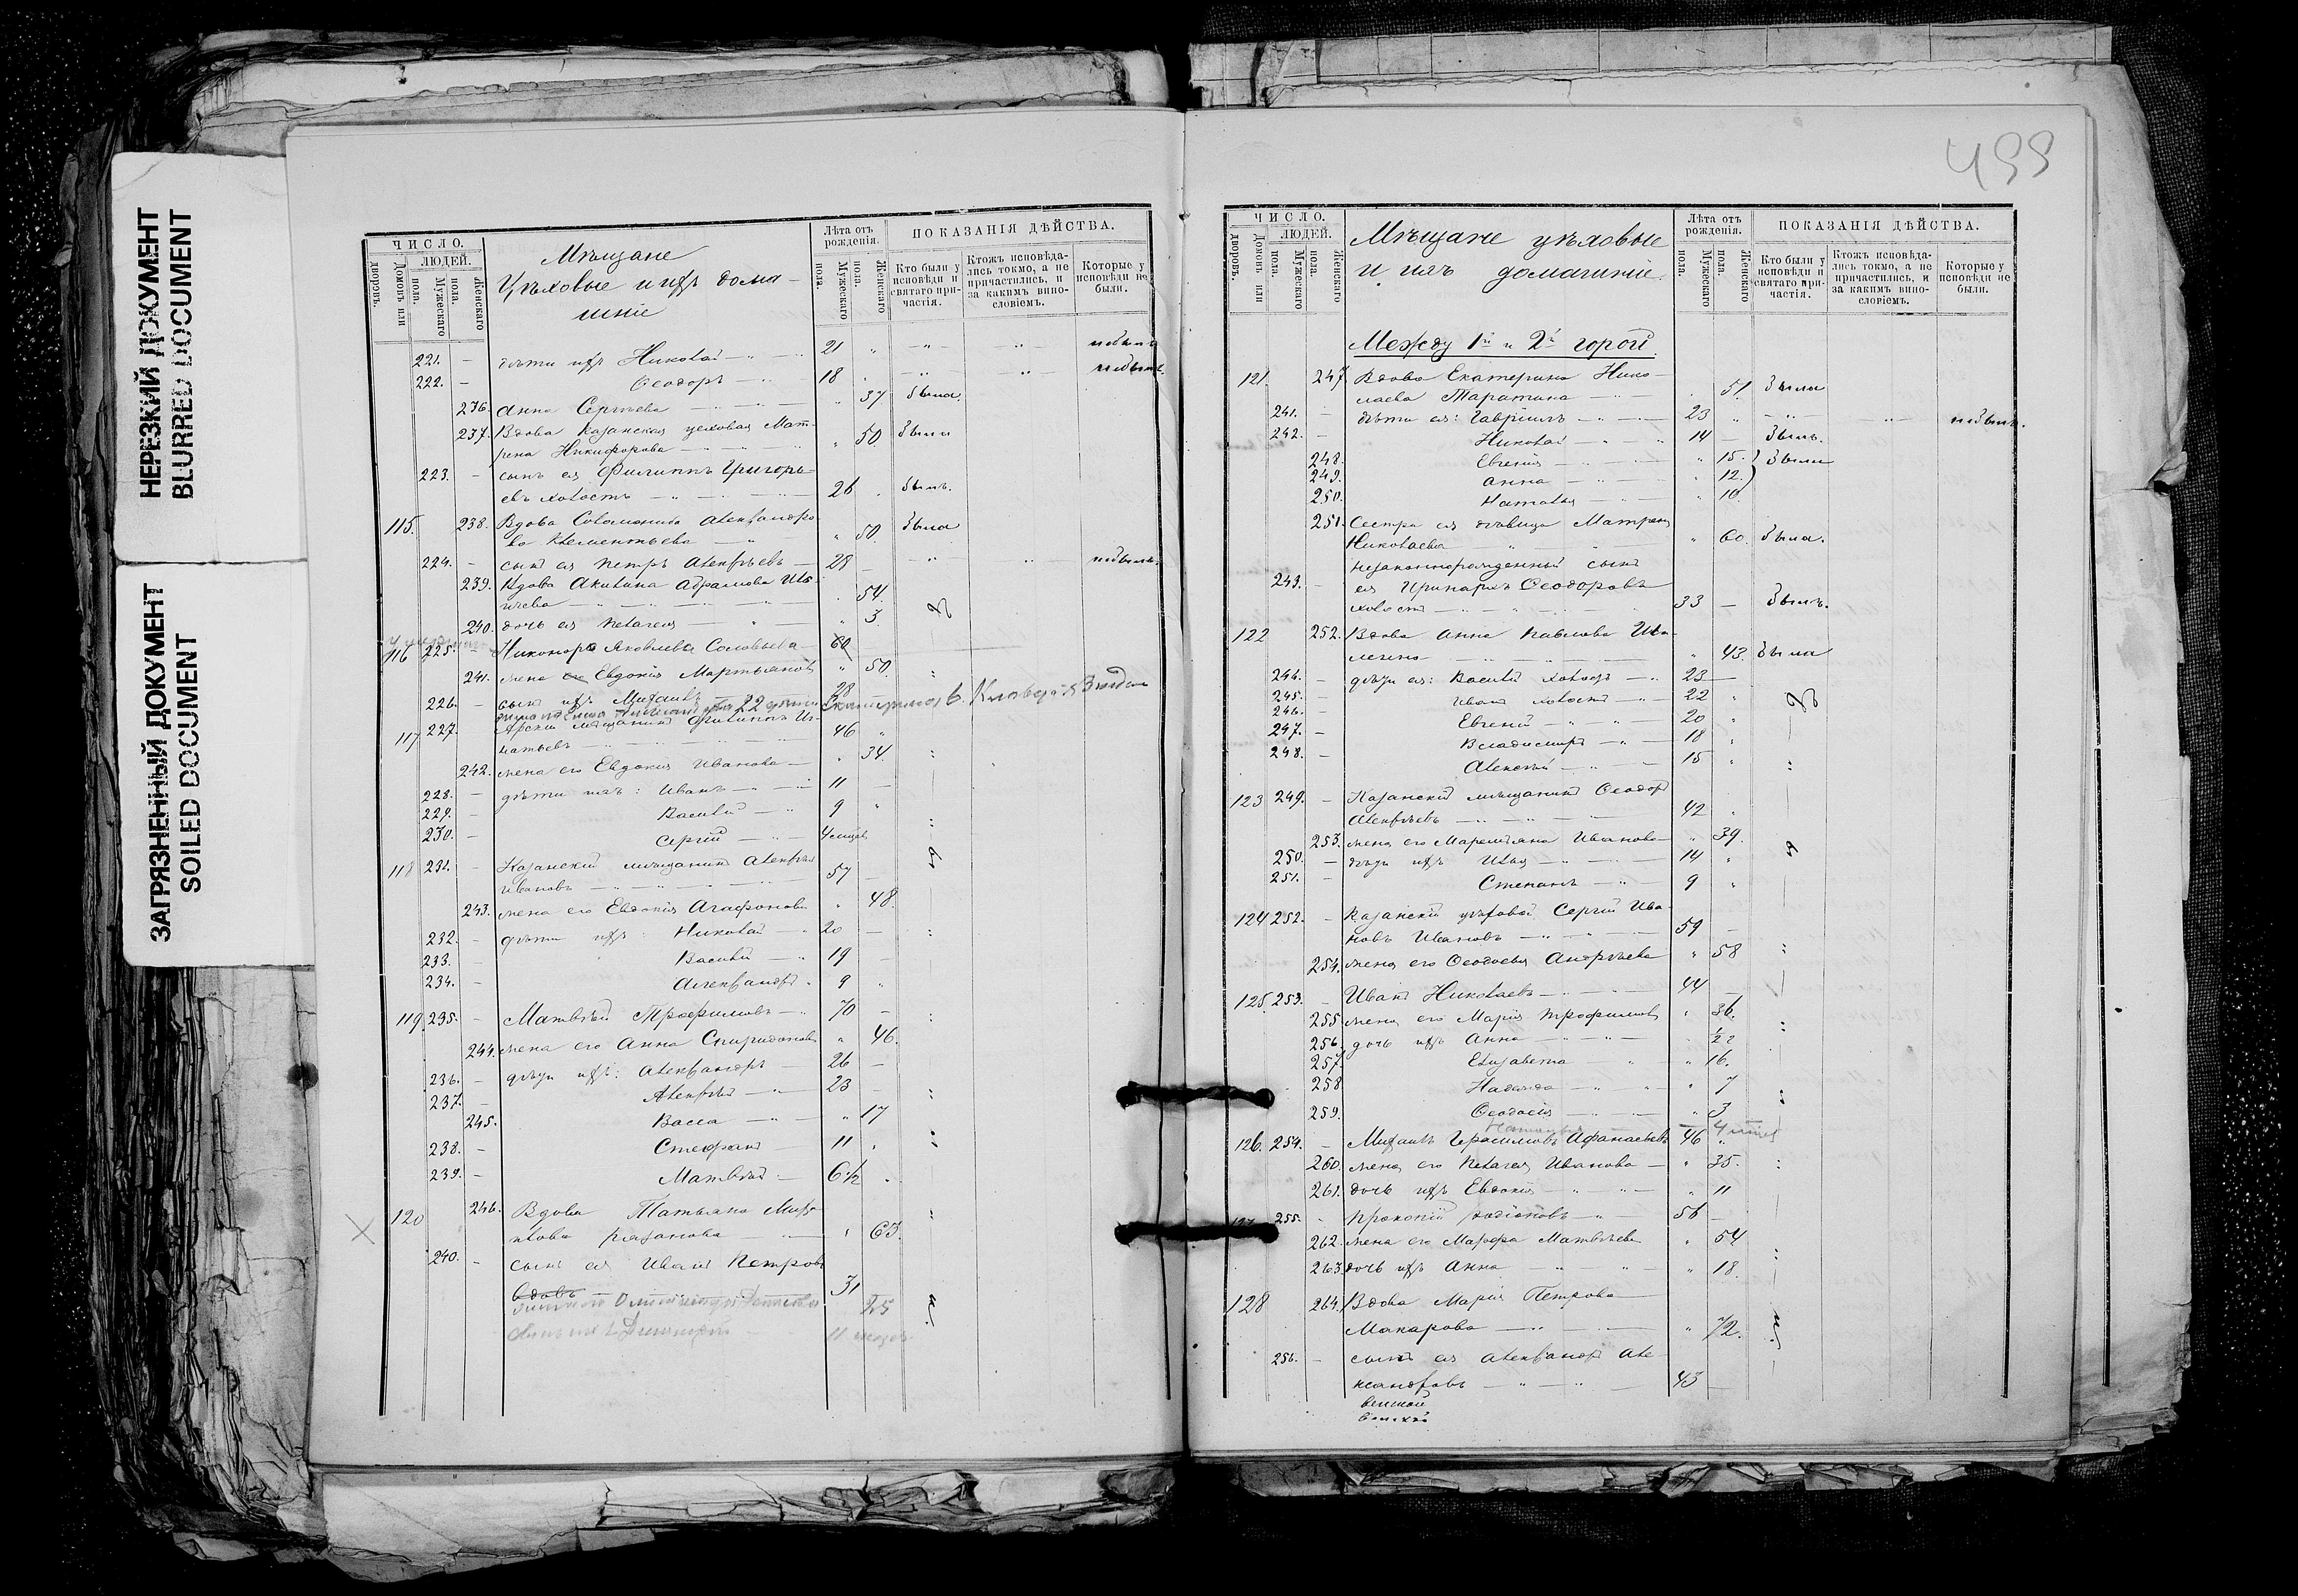 НЕРЕЗКИЙ ДОКУМЕНТ
BLURRED DOCUMENT
ЗАГРЯЗНЕННЫЙ ДОКУМЕНТ
SOILED DOCUMENT
ЧИСЛО.
ЛЮДЕЙ.
Домовъ или дворовъ.
Мужескаго пола.
Женскаго пола.
Мѣщане
Цѣховые и ихъ дома-
шніе
Лѣта отъ рожденія.
Мужескаго пола.
Женскаго пола.
ПОКАЗАНІЯ ДѢЙСТВА.
Кто были у исповѣди и святаго причастія.
Ктожъ исповѣдались токмо, а не причастились, и за какимъ винословіемъ.
Которые у исповѣди не были.
221. — дѣти ихъ Николай 21
222. — Ѳеодоръ 18
236. Анна Сергѣева 37 была.
237. Вдова Казанская цеховая Мат-
рена Никифорова 50 была
223. — сынъ ея Филиппъ Григорь-
евъ холостъ 26 былъ.
115. 238. Вдова Соломонида Александро-
ва Клементьева 50 была
224. — сынъ ея Петръ Алексѣевъ 28 небылъ.
239. Вдова Акилина Абрамова Иль-
ичева 54.
240. дочь ея Пелагея 3
116 225. Никоноръ Яковлевъ Соловьевъ 60
241. жена его Евдокія Мартьянова 50
226. — сынъ ихъ Михаилъ 28
117 227. Арскій мѣщанинъ Филиппъ Иг-
натьевъ 46
242. жена его Евдокія Иванова 34.
228. — дѣти ихъ: Иванъ 11
229. — Василій 9
230. — Сергій 4 мѣсяц
118 231. — Казанскій мѣщанинъ Алексѣй
Ивановъ 57
243. жена его Евдокія Агафонова 48.
232. — дѣти ихъ: Николай 20
233. — Василій 19
234. — Александръ 9
119. 235. — Матвѣй Трофимовъ 70
244. жена его Анна Спиридонова 46.
236. — дѣти ихъ: Александръ 26
237. — Алексѣй 23
245. Васса 17
238. — Стефанъ 11
239. — Матвѣй 6½
120 246. Вдова Татьяна Миха-
йлова Рязанова 63.
240. — сынъ ея Иванъ Петровъ
вдовъ 31
25
11 мѣсяц
499
ЧИСЛО.
ЛЮДЕЙ.
Домовъ или дворовъ.
Мужескаго пола.
Женскаго пола.
Мѣщане цѣховые
и ихъ домашніе.
Лѣта отъ рожденія.
Мужескаго пола.
Женскаго пола.
ПОКАЗАНІЯ ДѢЙСТВА.
Кто были у исповѣди и святаго причастія.
Ктожъ исповѣдались токмо, а не причастились, и за какимъ винословіемъ.
Которые у исповѣди не были.
Между 1й и 2й горой.
121. 247. Вдова Екатерина Нико-
лаева 51. была
241. — дѣти ея: Гавріилъ 23 небылъ.
242. — Николай 14 былъ.
248. Евгенія 15. были
249. Анна 12.
250. Наталья 10.
251. Сестра ея дѣвица Матрена
Николаева 60. была.
незаконнорожденный сынъ
243. — ея Иринархъ Ѳеодоровъ
холостъ 33 — былъ.
122 252. Вдова Анна Павлова Ша-
43. была
244. — дѣти ея: Василій холостъ 23
245. — Иванъ холостъ 22
246. — Евгеній 20
247. — Владимиръ 18
248. — Алексѣй 15
123 249. — Казанскій мѣщанинъ Ѳеодоръ
Алексѣевъ 42
253. жена его Маремьяна Иванова 39.
250. — дѣти ихъ Илья 14
251. — Степанъ 9
124 252. — Казанскій цѣховой Сергій Ива-
новъ Ивановъ 59
254. жена его Ѳеодосья Андрѣева 58
125. 253. — Иванъ Николаевъ 44
255 жена его Марія Трофимова 36.
256. дочь ихъ Анна 22
257. Елизавета 16.
258 Надежда 7
259. Ѳеодосія 3
Наталья 4 мѣсяц
126. 254. — Михаилъ Герасимовъ Афанасьевъ 46
260. жена его Пелагея Иванова 35.
261. дочь ихъ Евдокія 11
127 255. — Прокопій Родіоновъ 56
262. жена его Марфа Матвѣева 54
263. дочь ихъ Анна 18.
128 264. Вдова Марія Петрова
Макарова 72.
256. — сынъ ея Александръ Але-
ксандровъ 43